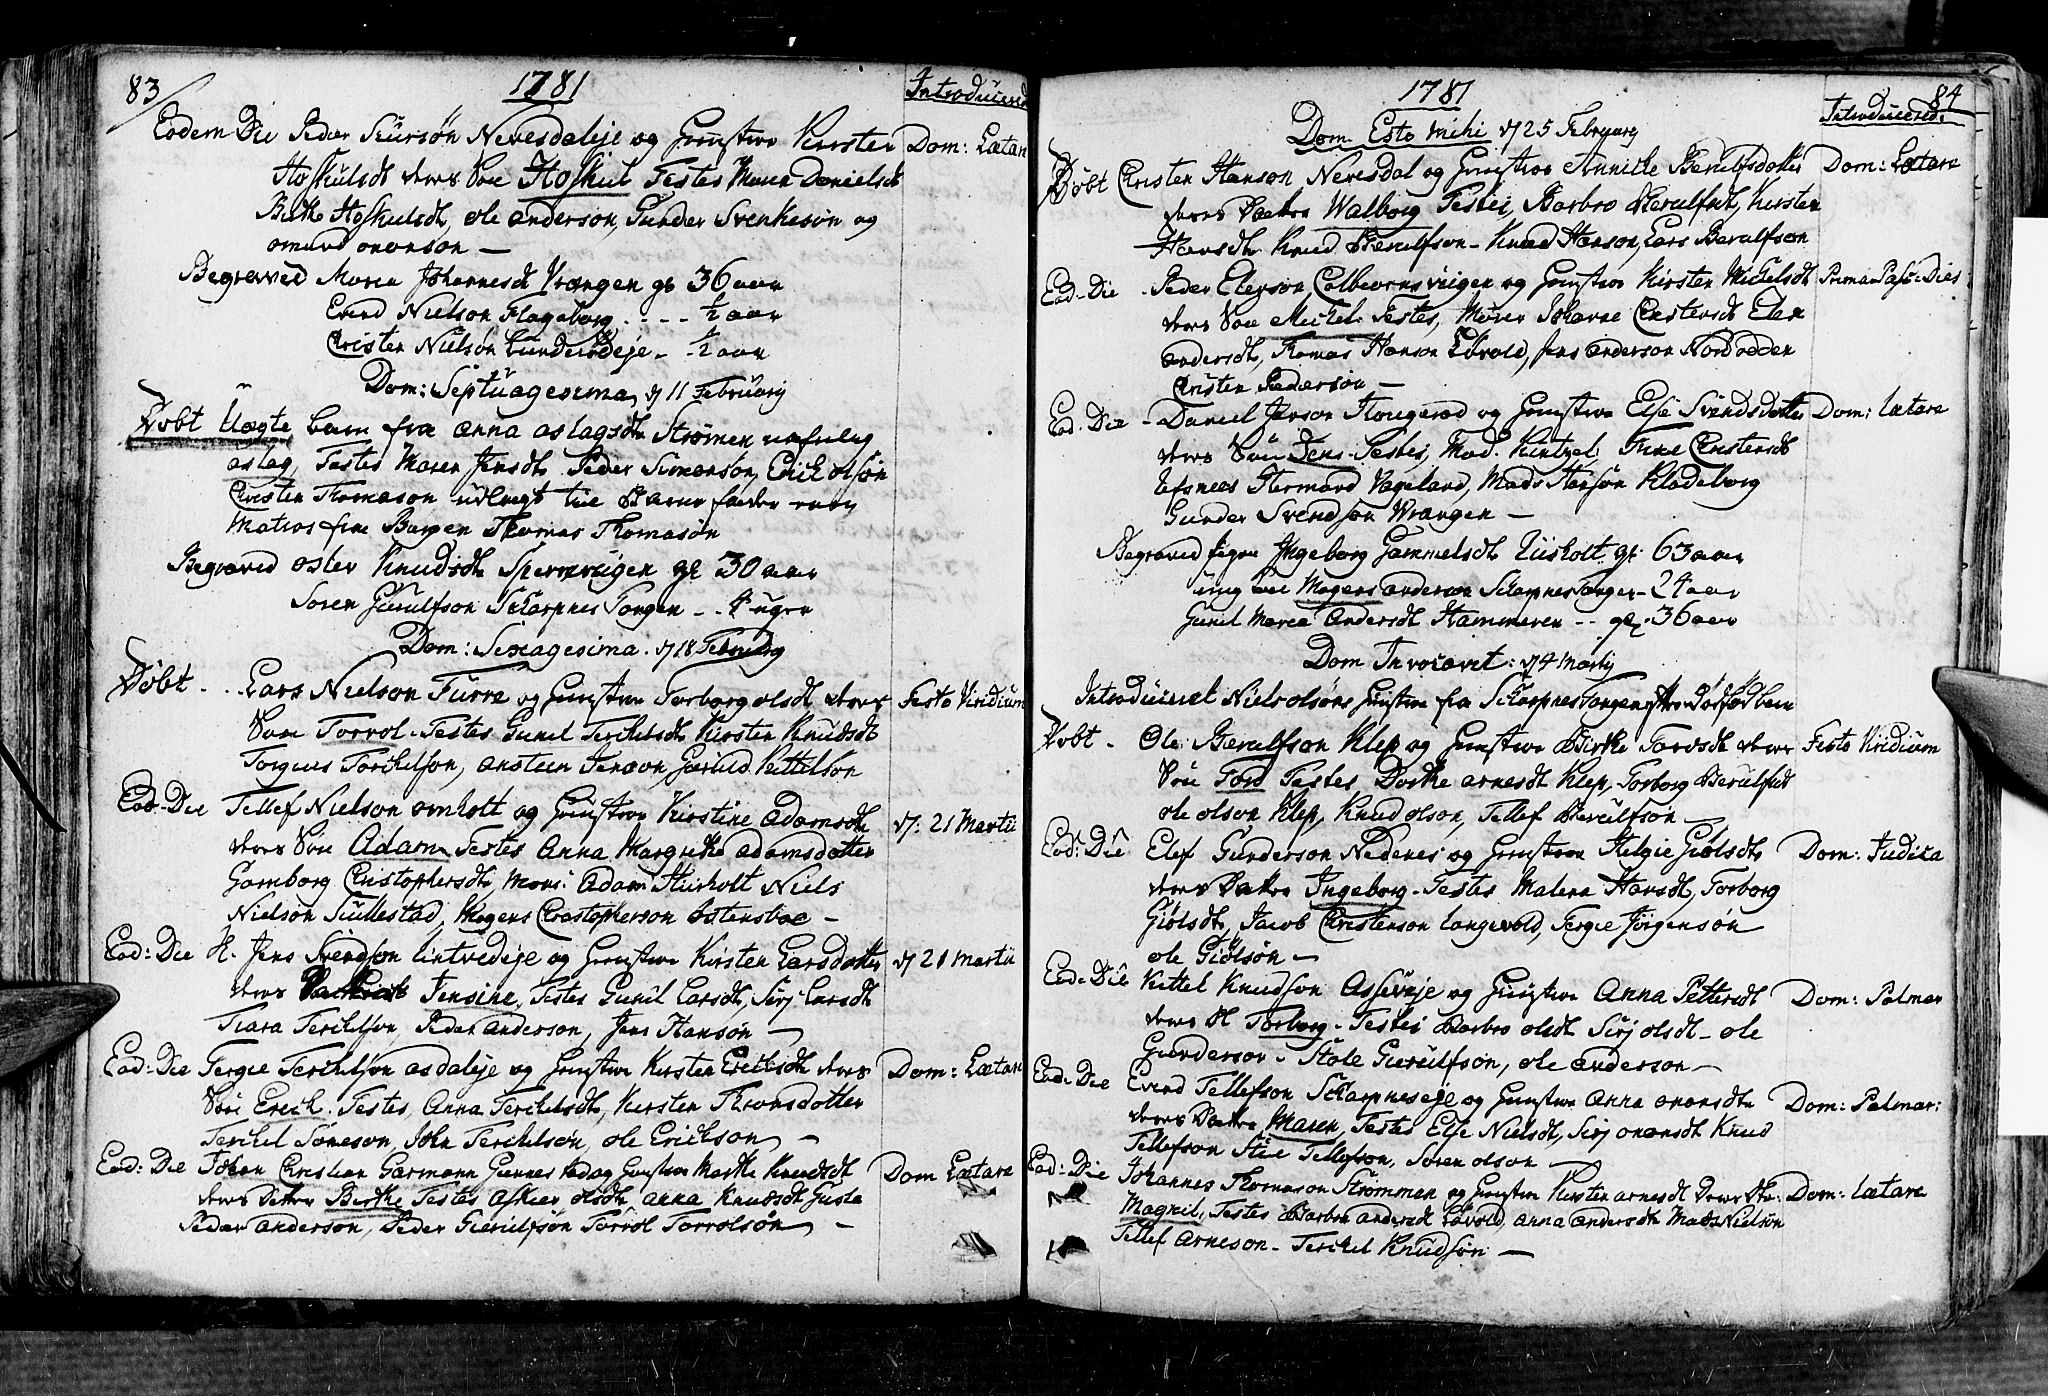 83
1781
Introduceret
Eodem Die Peder Siursøn Nevesdaleje og Hustroe Kirsten Dom: Lætare
Hoskulsdt deres Søn Hoskul Testes Maren Danielsdt
Birthe Hoskulsdt, Ole Anderson, Gunder Svenkeson og
Omund Ononson —
Begraved Maren Johannesdt Vrangen gl 36 aar
Evend Nielson Flageborg . - - - ½ aar
Christen Nielsøn Lunderødeje - ½ aar
Dom: Septuagesima, d 11 Februarij
Døbt Uægte barn fra Anna Aslagsdtr Strømen
Aslag, Testes Maren Jensdt Peder Simonson, Erich Olsøn
Christen Thomason udlægt til Barne fader
Matros fra Bergen Thomas Thomasøn
Begraved Aslev Knudsdt Spernvigen gl 30 aar
Soren Gurulfson Scharpnes Tangen - - 4 uger
Dom: Sexagesima . d 18 Februarij
Døbt - . . Lars Nielson Furre og Hustroe Torborg Olsdt, deres Festo Viridium
Søn Torvol - Testes Gunil Terchelsdt Kirsten Knudsdt
Torgius Torchelson, Ansteen Jenson Gurulf Kittelson
Eod: Die Tellef Nielson Omholt og Hustroe Kirstine Adamsdt d: 21 Martii
deres Søn Adam Testes Anna Margrethe Adamsdotter
Gamborg Christophersdt, Mons: Adam Hiisholt Niels
Nielson Tullestad, Mogens Christopherson Østensboe —
Eod: Die H. Jens Svendson Lintvedeje og Hustroe Kirsten Larsdotter d 21 Martii
deres Jensine, Testes Gunil Larsdt, Sirj Larsdt
Tiara Terchelson, Peder Anderson, Jens Hansøn —
Eod: Die Tergie Terchelson Asdaleje og Hustroe Kirsten Erichsdt deres Dom: Lætare
Søn Erich. Testes, Anna Terchelsdt, Kirsten Thronsdotter
Terchel Søneson, John Terchelsøn, Ole Erichson —
Eod: Die Johan Christian Garmann Hustroe Marthe Knudsdt Dom Lætare
deres Datter Birthe Testes Aslaer Olsdt, Anna Knudsdt
Peder Anderson, Peder Gurulfsøn Torvol Torvolsøn —
84
1781
Introducered:
Dom. Esto mihi d 25 Februarij
Døbt Christen Hanson Nevesdal og Hustroe Anniche Berulfsdotter Dom: Lætare
deres Datter Walborg Testes, Barbro Berulfsdt, Kirsten
Hansdt Knud Berulfson - Knud Hanson, Lars Berulfson
Eod-Die - Peder Elerson Colbiørnsvigen og Hustroe Kirsten Michelsdt Prima Pasc: Dies
deres Søn Michel. Testes, Maren Johanne Christensdt Elen
Andersdt, Thomas Hanson Løvold, Jens Anderson Nordodden
Christen Pederson —
Eod. Die - Daniel Jenson Hougerød og Hustroe Else Svendsdotter Dom: Lætare
deres Søn Jens - Testes, Mad. Kintzel. Trine Christensdt
Herman Vageland, Mads Hansøn Kladeborg
Gunder Svendson Vrangen —
Begraved pigen Ingeborg Gammelsdt Liisholt gl: 63 aar
ung karl Mogens Anderson Scharpnes Tangen - 24 aar
Gunil Maria Andersdt Hammeren - - gl. 36 aar
Dom Invocavit: d 4 Martij
Introduceret Niels Olsøns Hustroe fra Scharpnes Tangen efter dødfød barn
Døbt - Ole Berulfson Klep og Hustroe Birthe Torvsdt deres Festo Viridium
Søn Tord Testes Dorthe Arnesdt Klep, Torborg Berulfsdt
Ole Olson Klep, Knud Olson, Tellef Berulfsøn —
Eod: Die Elef Gunderson Nedenes og Hustroe Helgie Giølsdt Dom: Judica
deres Datter Ingeborg - Testes Malena Hansdt, Torborg
Giølsdt, Jacob Christenson Langevold, Tergie Jørgensøn
Ole Giølsøn —
Eod: Die Kittel Knudson Asseveje og Hustroe Anna Pettersdt Dom: Palmar
deres D Torborg - Testes Barbro Olsdt Sirj Olsdt - Ole
Gunderson - Stole Gurulfson, Ole Anderson —
Eod: Die Evend Tellefson Scharpneseje og Hustroe Anna Ononsdt Dom: Palmar:
deres Datter Maren, Testes Else Nielsdt, Sirj Ononsdt Knud
Tellefson Stie Tellefson, Soren Olson —
Eod: Die Johannes Thomason Strømmen og Hustroe Kirsten Arnesdt deres Da: Dom: Lætare
Magnil, Testes Barbro Andersdt Løvold, Anna Andersdt Mads Nielsøn
Tellef Arneson - Terchel Knudsøn —